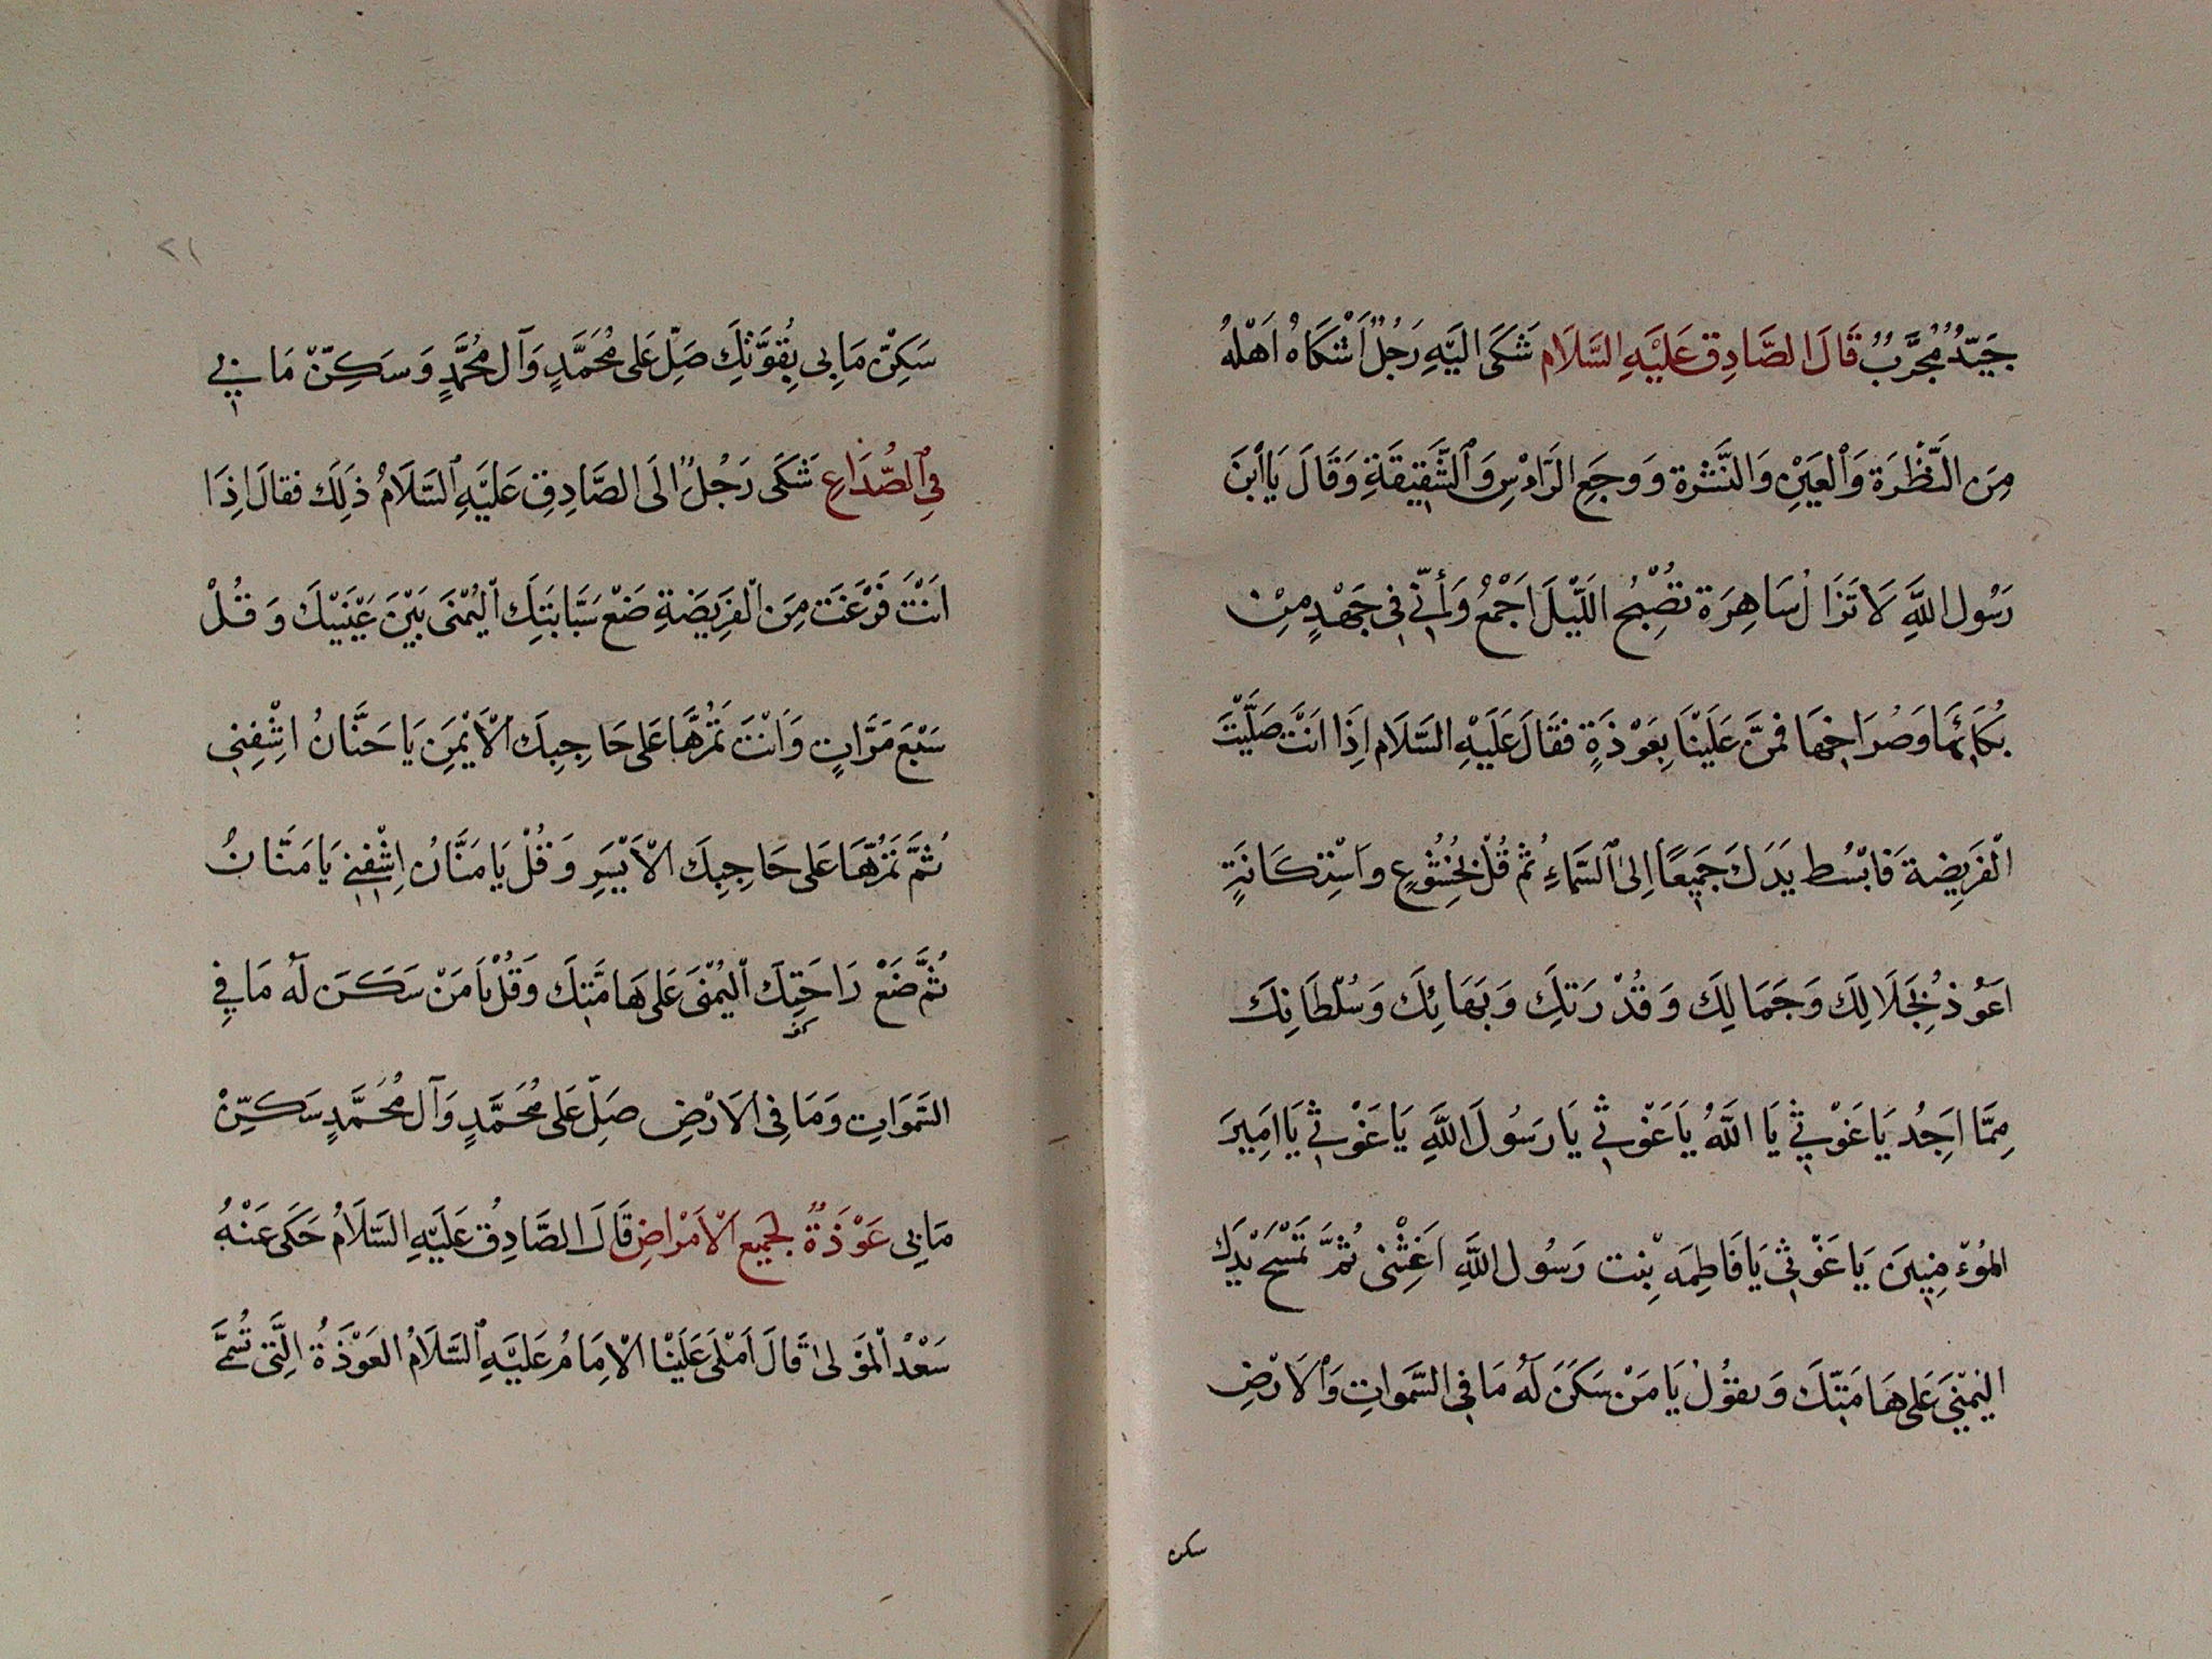 جَيِّدٌ مُجَرَّبٌ قَالَ الصَّادِق عَلَيْهِ السَّلَام شَكَى اِلَيْهِ رَجُلٌ اشْتكَاهُ اَهْلهُ
مِنَ النَّظْرَة وَالْعَيْنِ وَالنَّشْرة وَوجَعِ الرَّاْسِ وَالشَّقِيقَةِ وَقَالَ يَاابْنَ
رَسُول اللَّهِ لَا تَزَالُ سَاهِرَة تصْبِحُ اللَّيْلَ اَجْمعُ وَأنّي في جَهْدٍ مِنْ
بُكَائهَا وَصُرَاخِهَا فمنَّ عَلَيْنَا بِعَوْذَةٍ فقَالَ عَلَيْهِ السَّلَام اِذَا انَتَ صَلَّيْتَ
الْفَرِيضة فَابْسُط يَدَكَ جَمِيعًا اِلَى السَّمَاءِ ثُم قُلْ بخُشُوعٍ واسْتِكَانَةٍ
اعَوُذ بِجَلَالِكَ وَجَمَالِكَ وَقُدْرَتكِ وَبَهَائِكَ وَسُلْطَانِكَ
مِمَّا اَجِدُ يَا غَوْثي يَا اللَّهُ يَا غَوْثي يَا رَسُولَ اللَّهِ يَا غَوْثي يَا امِيرَ
المُؤمِنِينَ يَا غَوْثي يَا فَاطِمَه بِنت رَسُول اللَّهِ اَغِثْنى ثُمَّ تَمْسَح يَدَكَ
اليُمْنَى عَلى هَامَتِكَ وَتقوُلُ يَا مَنْ سَكَنَ لَهُ مَا في السَّموَاتِ وَالْاَرْضِ
سكن
٢١
سَكِنْ مَا بى بِقُوَّتِكَ صَلِّ عَلى مُحَمَّدٍ وَآل مُحَمَّدٍ وَسَكِّنْ مَا بِي
فِي الصُّدَاعِ شَكَى رَجُلٌ الَى الصَّادِقِ عَلَيْهِ السَّلَامُ ذَلِكَ فقالَ اِذَا
انَتْ فَرَغْتَ مِنَ الْفَرِيَضةِ ضَعْ سَبَّابَتَكِ الْيُمْنَى بَيْنَ عَيْنَيْكَ وَقُلْ
سَبْعَ مَرَّاتٍ وَاَنْتَ تَمُرُّهَا عَلى حَاجِبِكَ الْاَيْمَنِ يَا حَنَّانُ اشْفِنِي
ثُمَّ تَمُرُّهَا عَلى حَاجِبِكَ الْاَيْسَرِ وَقُلْ يَا مَنَّانُ اِشْفِنِي يَا مَنَّانُ
ثُمَّ ضَعْ رَاحَتِكَ الْيُمْنَى عَلى هَامَتِكَ وَقُلْ يَا مَنْ سَكَنَ لَهُ مَا فِي
السَّمَوَاتِ وَمَا فى الاَرْضِ صَلِّ عَلى مُحَمَّدٍ وَآل مُحَمَّدٍ سَكِّنْ
مَا بِي عَوْذَةٌ لجَمِيع الْاَمْرَاضِ قَالَ الصَّادِقُ عَلَيْهِ السَّلَامُ حَكَى عَنْهُ
سَعْدُ الْمَوْلى قَالَ اَمْلَى عَلَيْنَا الْاِمَامُ عَلَيْهِ السَّلَامُ العَوْذَةُ الَّتى تُسَمَّى